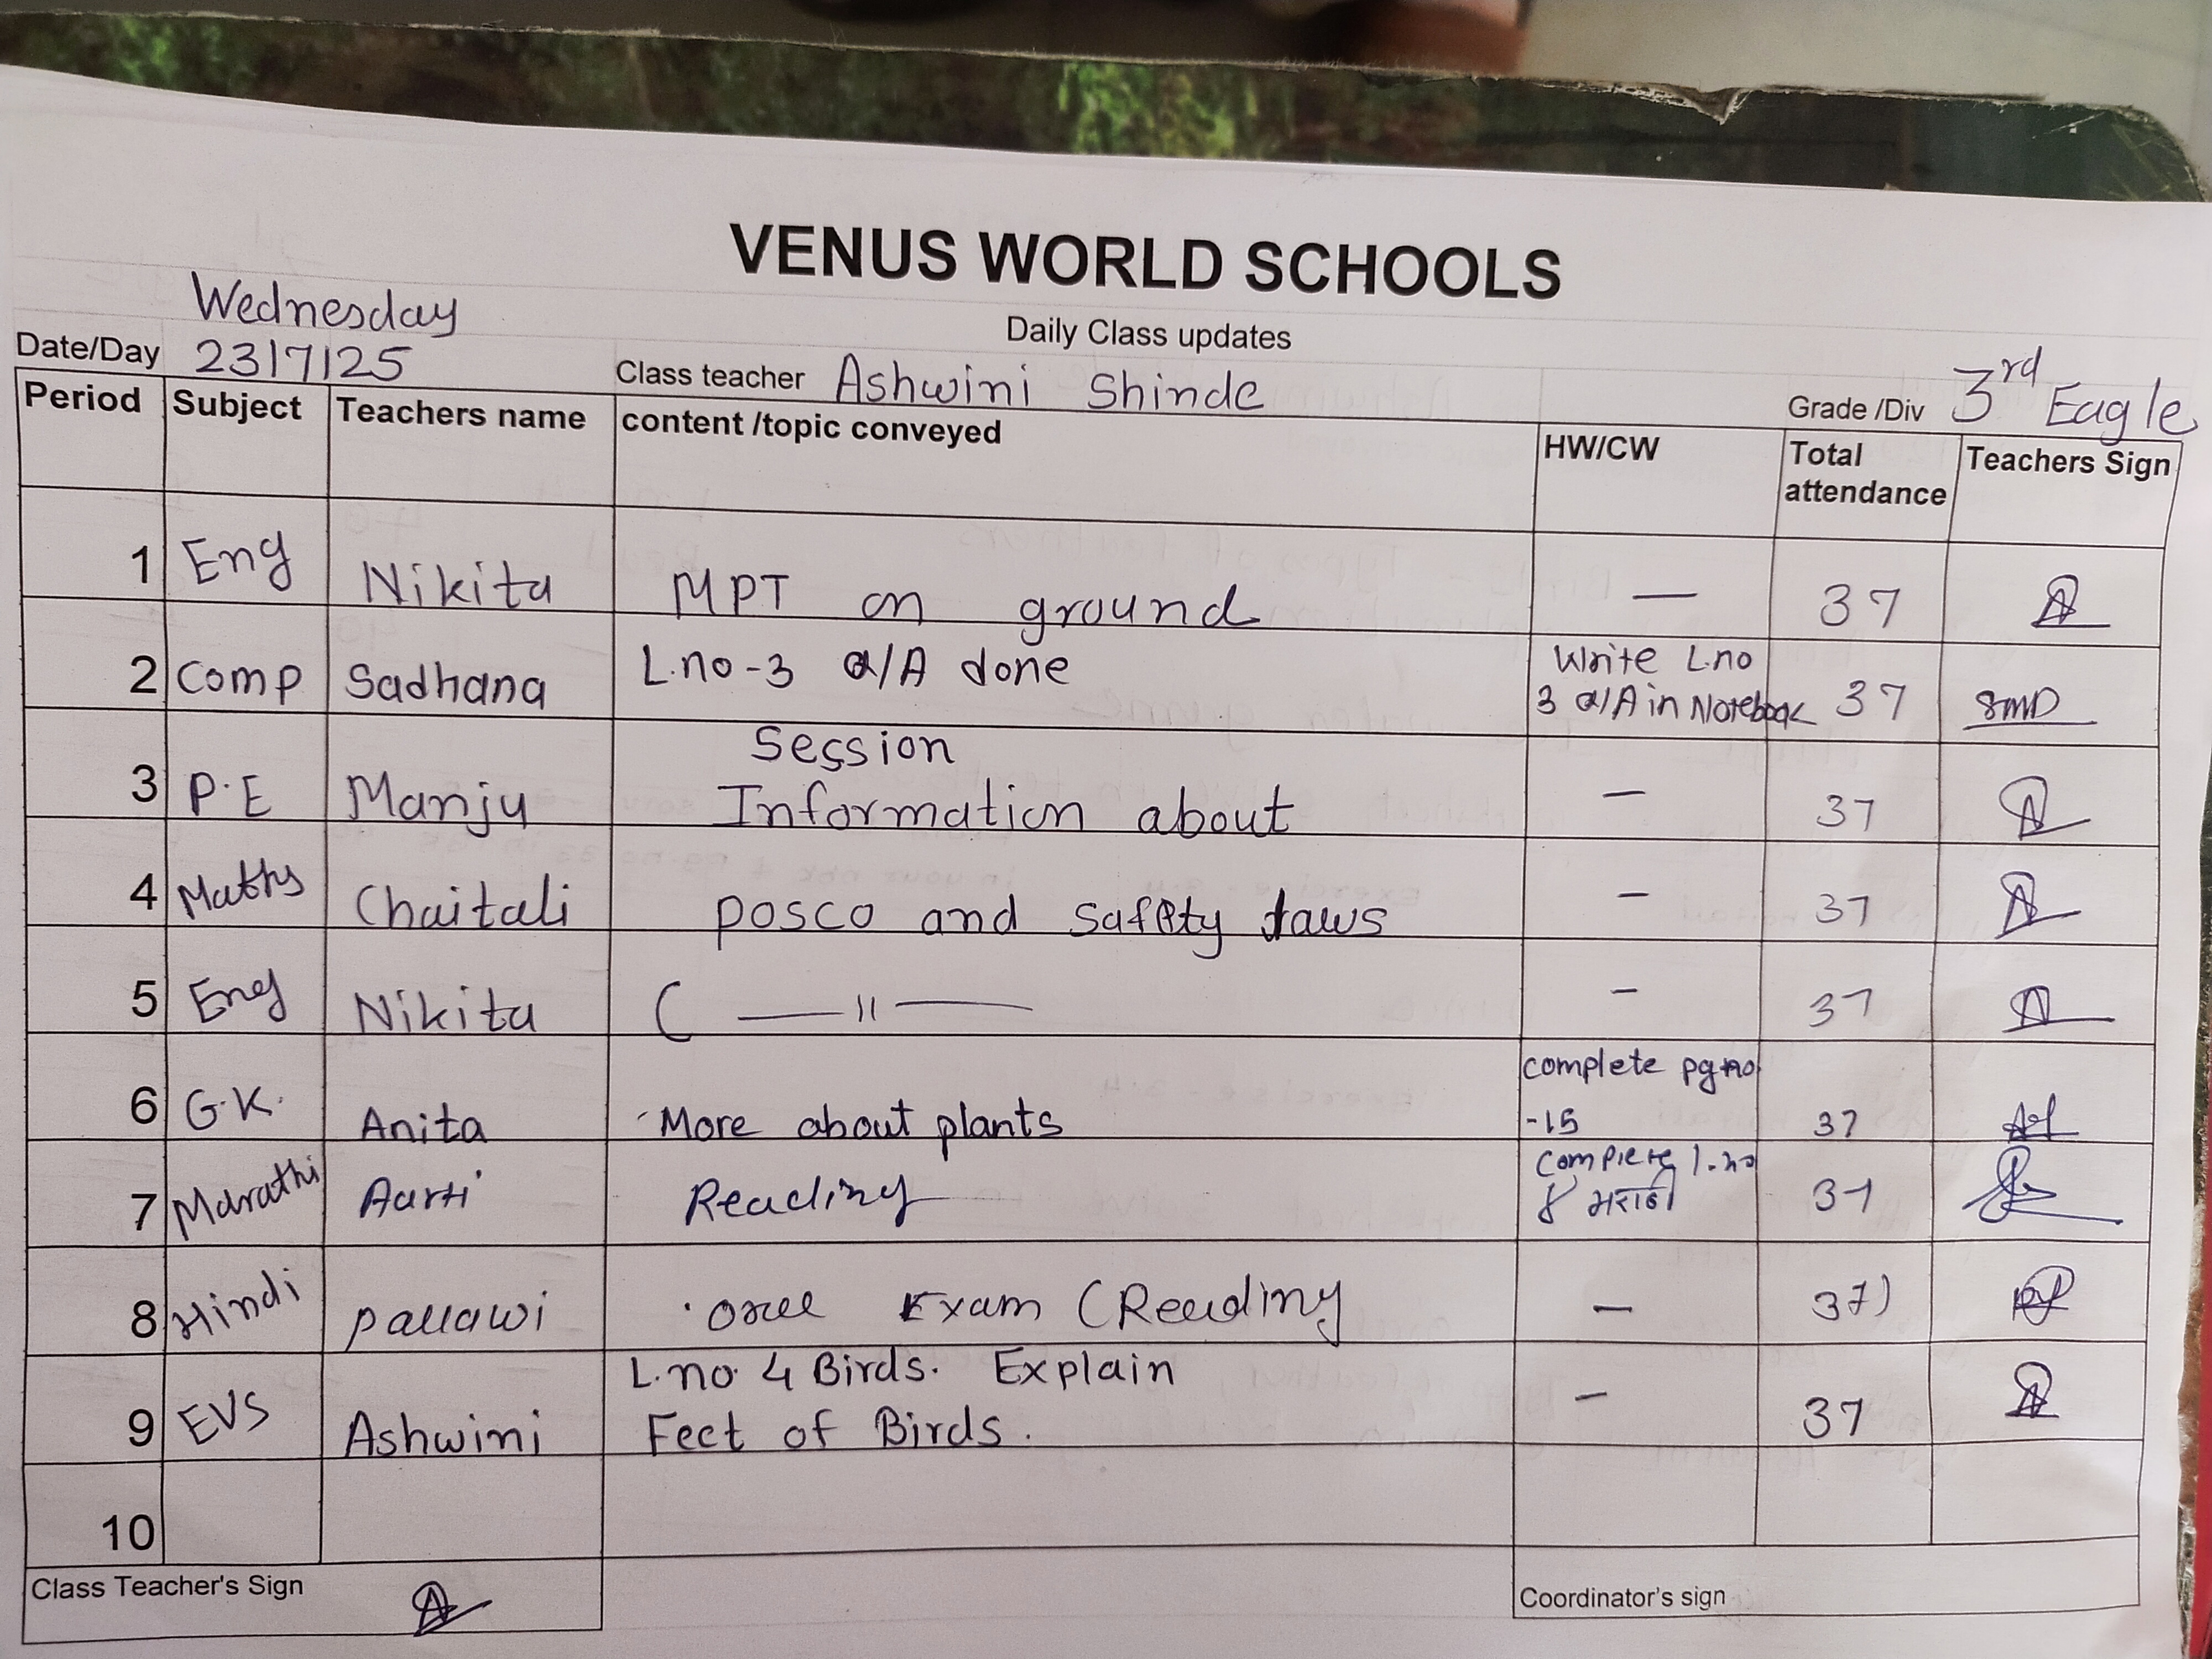 VENUS WORLD SCHOOLS
Daily Class updates
Wednesday
Date/Day 23/7/25
Class teacher Ashwini Shinde
Grade /Div 3rd Eagle
Period Subject Teachers name content /topic conveyed HW/CW Total attendance Teachers Sign
1 Eng Nikita MPT on ground — 37
2 Comp Sadhana L.no-3 Q/A done Write L.no 3 Q/A in Notebook 37 SMD
3 P.E Manju Session Information about — 37
4 Maths Chaitali posco and safety laws — 37
5 Eng Nikita ( —— 〃 —— — 37
6 G.K. Anita More about plants complete pg no -15 37
7 Marathi Aarti Reading Complete l.no ४ मराठी 37
8 Hindi pallawi Exam (Reading — 37)
9 EVS Ashwini L.no. 4 Birds. Explain Feet of Birds. — 37
10
Class Teacher's Sign
Coordinator's sign